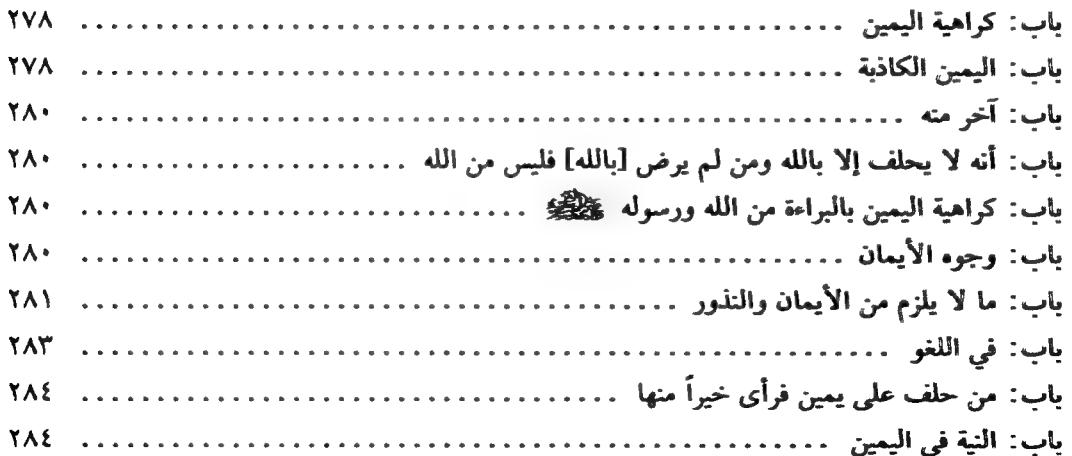 باب: كراهية اليمين ................ ٢٧٨
باب: اليمين الكاذبة ................ ٢٧٨
باب: آخر منه ................ ٢٨٠
باب: أنه لا يحلف إلا بالله ومن لم يرض [بالله] فليس من الله ................ ٢٨٠
باب: كراهية اليمين بالبراءة من الله ورسوله ﷺ ................ ٢٨٠
باب: وجوه الأيمان ................ ٢٨٠
باب: ما لا يلزم من الأيمان والنذور ................ ٢٨١
باب: في اللغو ................ ٢٨٣
باب: من حلف على يمين فرأى خيراً منها ................ ٢٨٤
باب: النية في اليمين ................ ٢٨٤